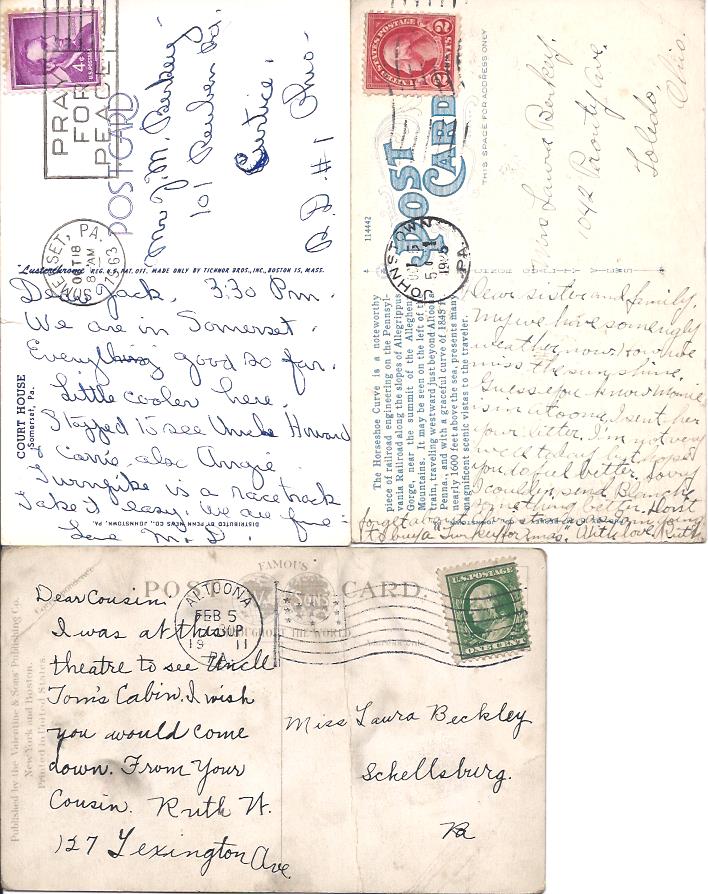 U.S. POSTAGE
4¢
PRAY
FOR
PEACE
POST CARD
SOMERSET, PA.
OCT 18
8 AM
1963
Mr J. M. Berkey
101 Reuben
Curtice,
R.D. #1 Ohio.
"Lusterchrome" REG. U.S. PAT. OFF. MADE ONLY BY TICHNOR BROS., INC., BOSTON 15, MASS.
Dear Jack, 3:30 Pm.
We are in Somerset.
Everything good so far.
Little cooler here.
Stopped to see Uncle Howard
Carrie, also Angie
Turnpike is a race track
Take it easy we are fine.
Love M.
COURT HOUSE
Somerset, Pa.
DISTRIBUTED BY PENN NEWS CO., JOHNSTOWN, PA.
UNITED STATES POSTAGE
2 CENTS 2
POST
CARD
THIS SPACE FOR ADDRESS ONLY
114442
JOHNSTOWN
PA.
Miss Laura Berkey,
1042 Prouty Ave.
Toledo
Ohio.
The Horseshoe Curve is a noteworthy
piece of railroad engineering on the Pennsyl-
vania Railroad along the slopes of Allegrippus
Gorge, near the summit of the Allegheny
Mountains. It may be seen on the left of the
train, traveling westward just beyond Altoona
Penna., and with a graceful curve of 1845 ft
nearly 1600 feet above the sea, presents many
magnificent scenic vistas to the traveler.
Dear sister and family,
My we have some ugly
weather now. How we
miss the sun shine.
Guess you know mame
is in altoona. I sent her
your letter. I'm not very
well today but hope
you all feel better. Sorry
I couldn't send Blanche
something better. Don't
forget
to buy a Turkey for Xmas. With love, Ruth
POST CARD.
FAMOUS
THROUGHOUT THE WORLD.
ALTOONA
FEB 5
30P
19 11
PA.
U.S. POSTAGE
ONE CENT
Dear Cousin:
I was at this
theatre to see Uncle
Tom's Cabin. I wish
you would come
down. From Your
Cousin. Ruth W.
127 Lexington Ave.
Miss Laura Beckley
Schellsburg.
Pa
Published by the Valentine & Sons' Publishing Co.
New York and Boston.
Printed in United States